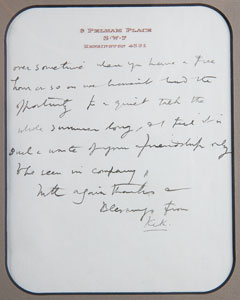 9 PELHAM PLACE
S·W·7
KENSINGTON 4031
over sometime when you have a free
hour or so as we haven't had the
opportunity for a quiet talk the
whole summer long, & I feel it is
such a waste of your friendship only
to be seen in company,
With again thanks &
Blessings from